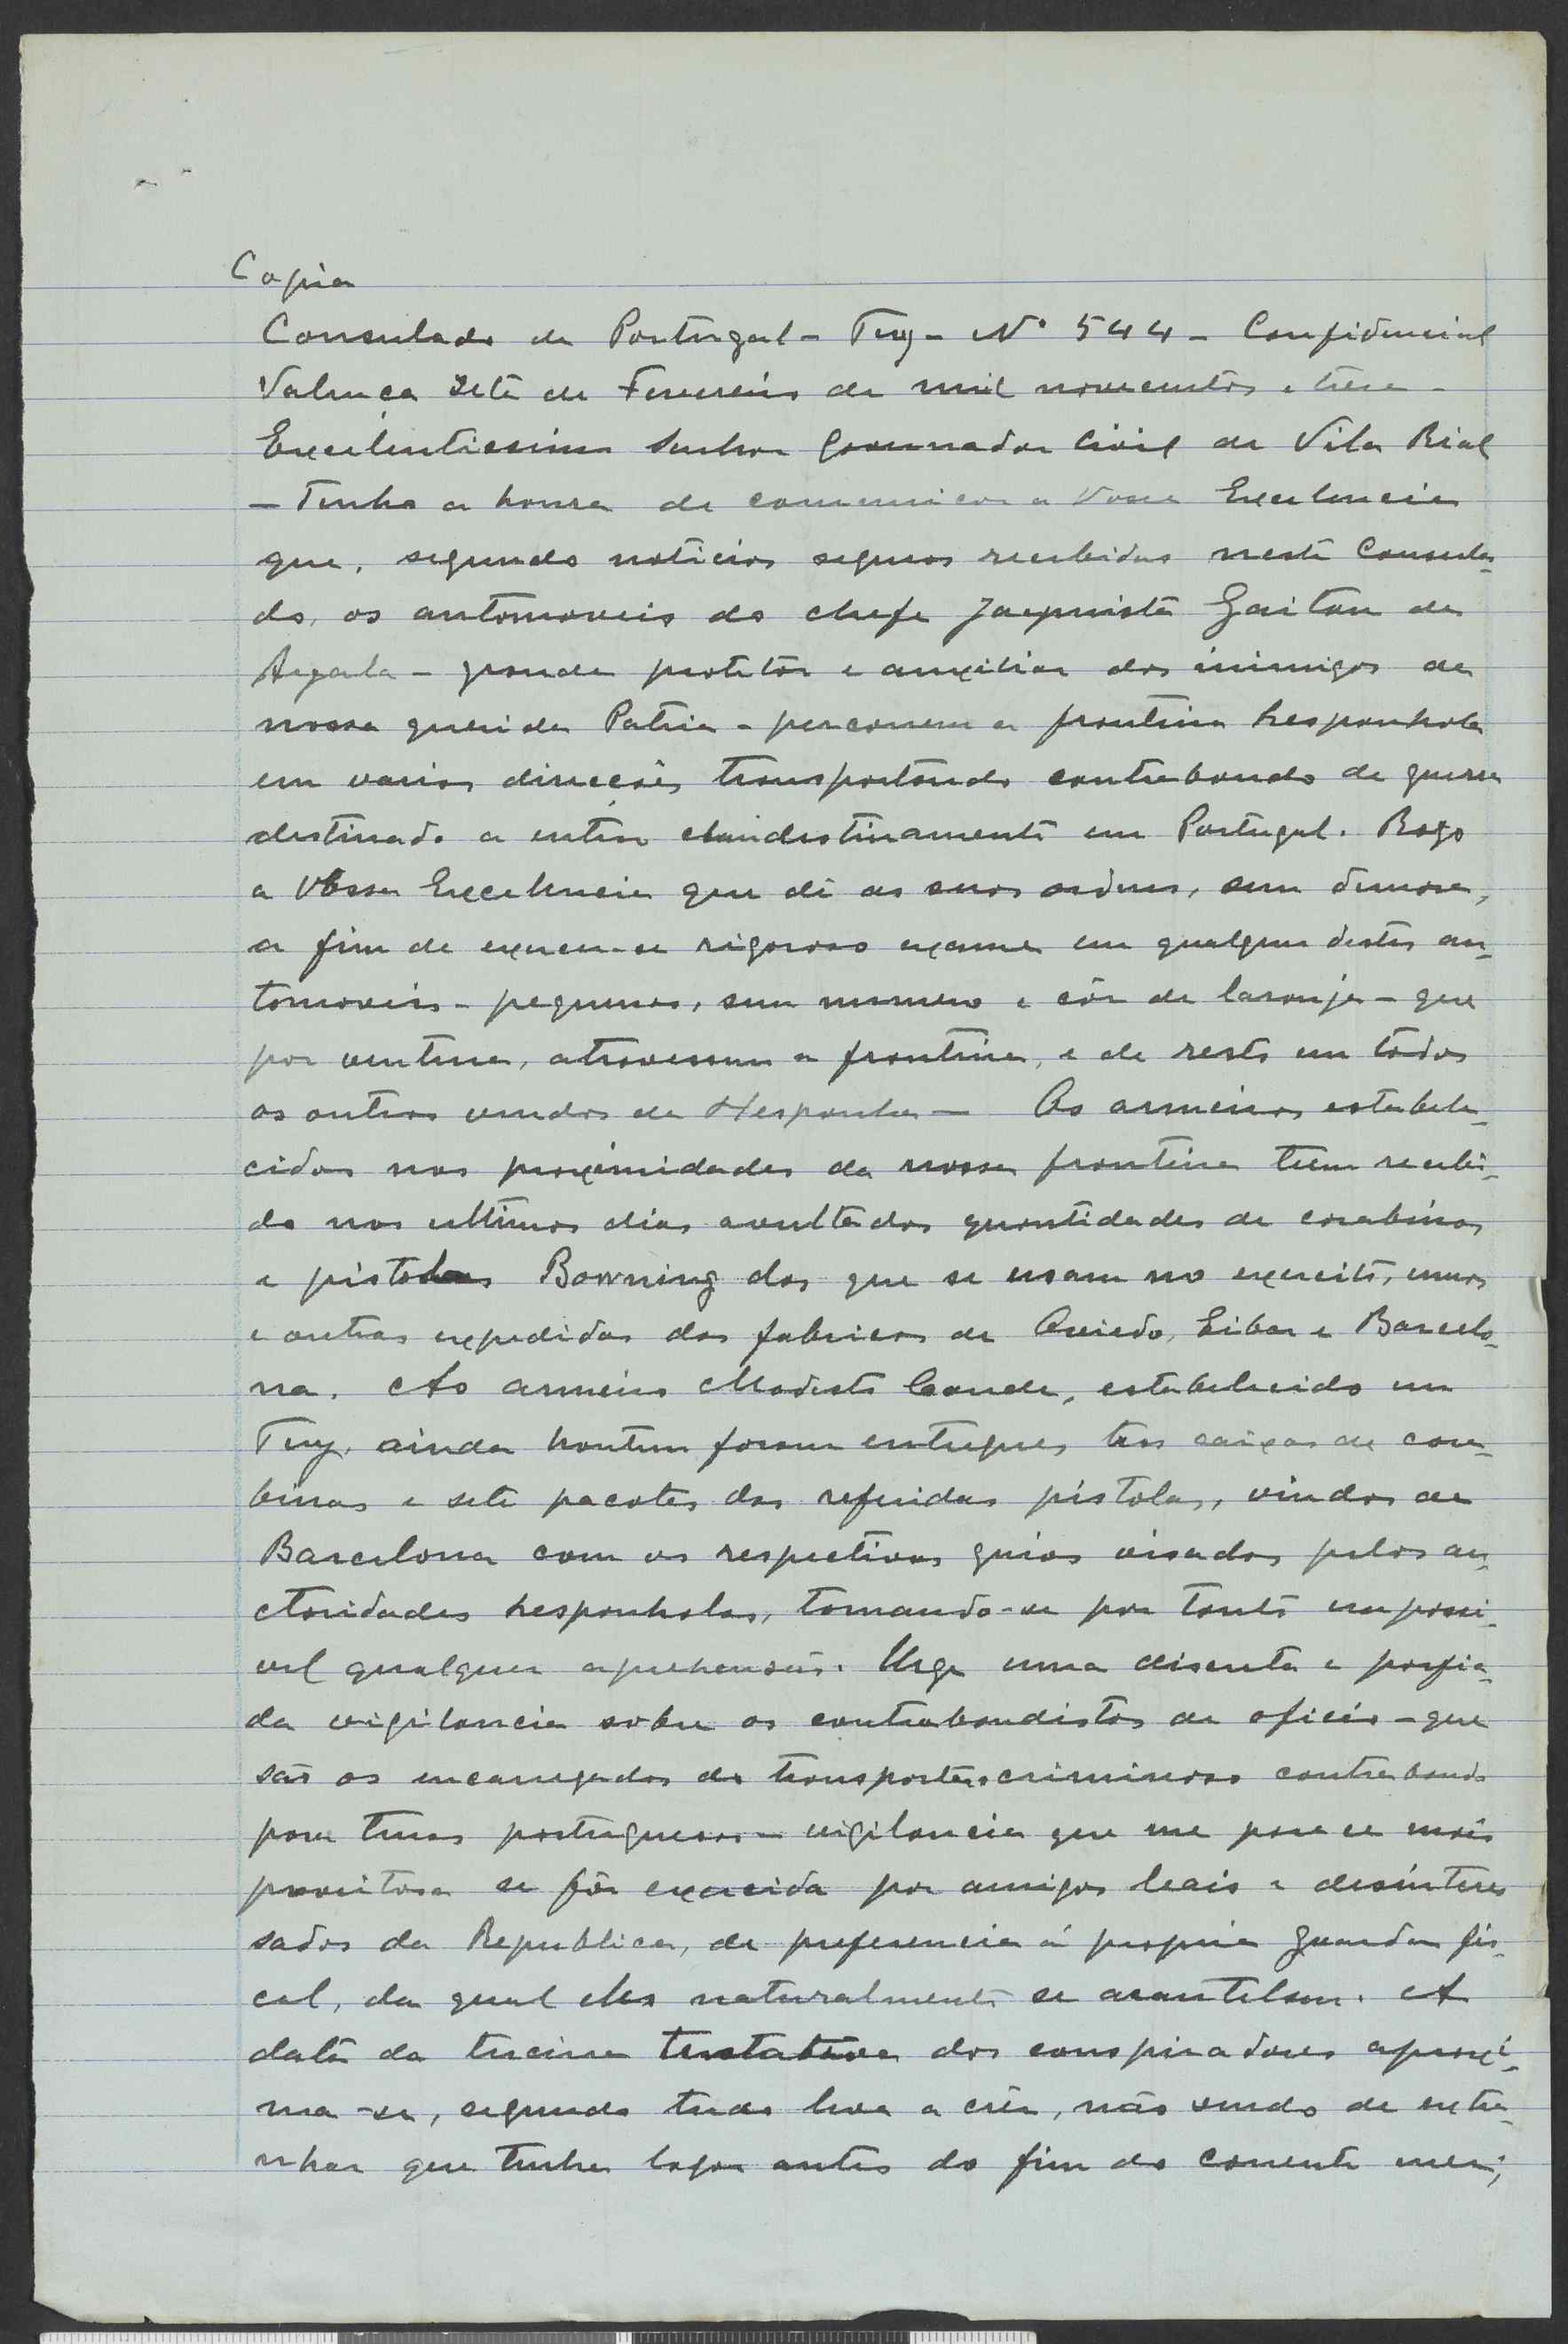 Copia
Consulado de Portugal - Tuy - Nº 544 - Confidencial
Valença sete de Fevereiro de mil novecentos e treze -
Excelentissimo Senhor Governador Civil de Vila Rial
- Tenho a honra de comunicar a Vossa Excelencia
que, segundo noticias seguras recebidas neste Consula-
do, os automoveis do chefe jaquista Gaitan de
Argala - grande protetor e auxiliar dos inimigos da
nossa querida Patria - percorrem a fronteira hespanhola
em varias direcções transportando contrabando de guerra
destinado a entrar clandestinamente em Portugal. Rogo
a Vossa Excelencia que dê as suas ordens, sem demora,
a fim de exercer-se rigoroso exame em qualquer destes au-
tomoveis - pequenos, sem numero e côr de laranja - que
por ventura, atravessem a fronteira, e de resto em todos
os outros vindos de Hespanha - Os armeiros estabele-
cidos nas proximidades da nossa fronteira teem recebi-
do nos ultimos dias avultadas quantidades de carabinas
e pistolas Bowning das que se usam no exercito, umas
e outras expedidas das fabricas de Oviedo, Eibar e Barcelo-
na. Ao armeiro Modesto Conde, estabelecido em
Tuy, ainda hontem foram entregues tres caixas de cara-
binas e sete pacotes das referidas pistolas, vindos de
Barcelona com as respectivas guias visadas pelas au-
ctoridades hespanholas, tornando-se por tanto impossi-
vel qualquer aprehensão. Urge uma discreta e porfia-
da vigilancia sobre os contrabandistas de oficio - que
são os encarregados de transportar o criminoso contrabando
para terras portuguesas - vigilancia que me parece mais
proveitosa se fôr exercida por amigos leais e desinteres
sados da Republica, de preferencia á propria guarda fis-
cal, da qual eles naturalmente se acautelam. A
data da terceira tentativa dos conspiradores aproxi-
ma-se, segundo tudo leva a crêr, não sendo de extra-
nhar que tenha logar antes do fim do corrente mez;